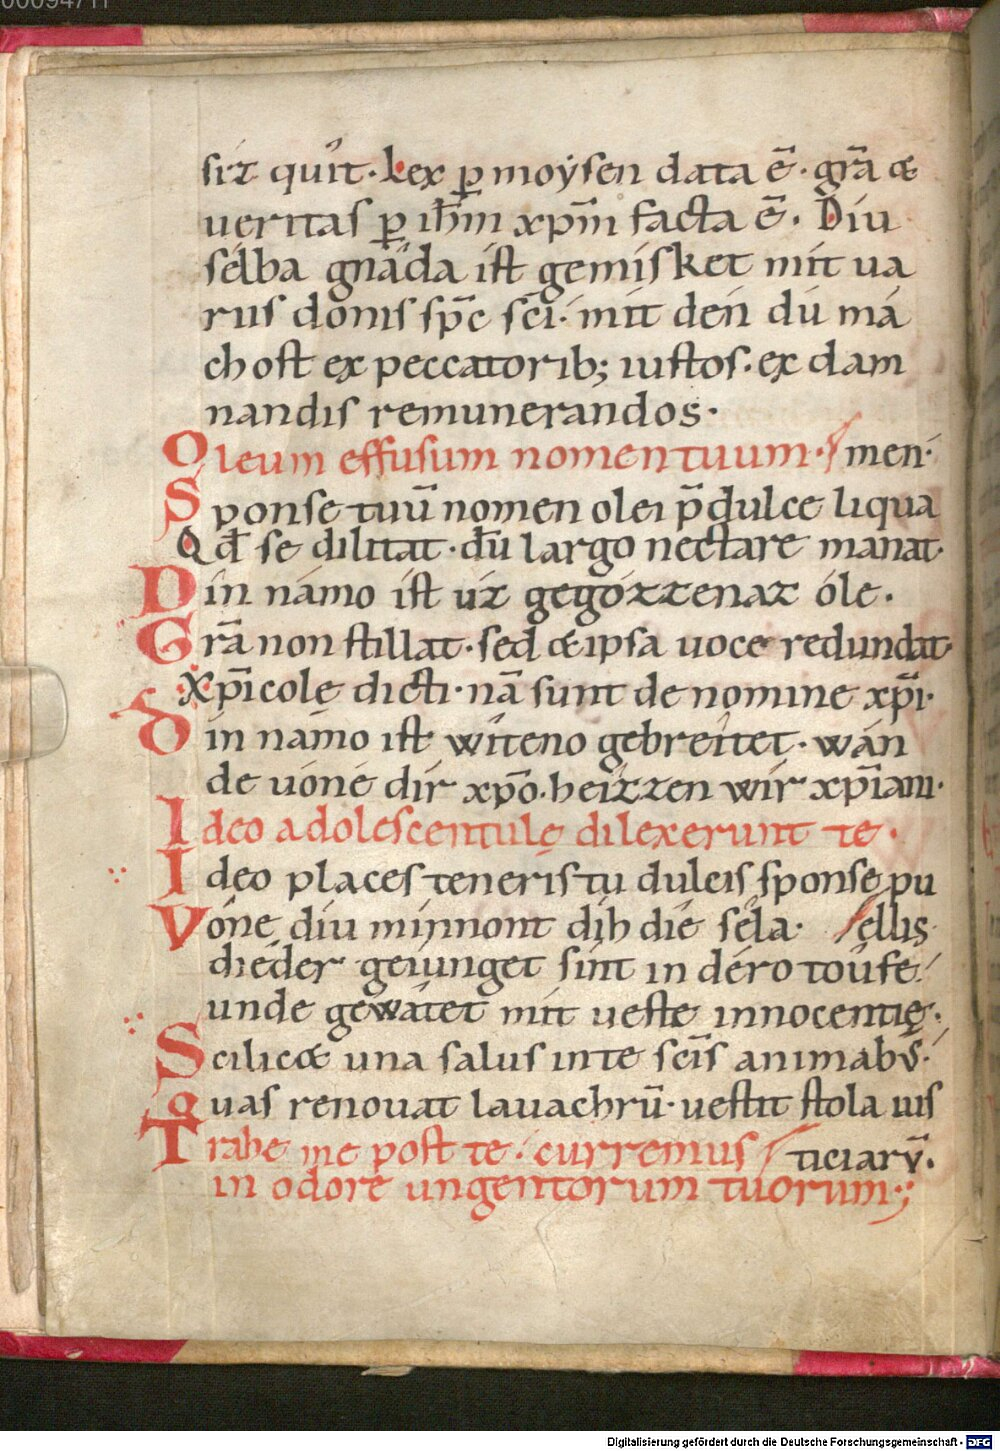 00094711
siz quît· Lex ꝑ moẏsen data ē· grā &
ueritas ꝑ ihm̄ xpm̄ facta ē. Diu
sélba gnâda ist gemisket mit ua
rus donis spc̄ sc̄i· mit den dû má
chost ex peccatorib; iustos· ex dam
nandis remunerandos·
Oleum effusum nomen tuum· / men·
Sponse tuū nomen olei p̄dulce liqua
Qd̄ se dilitat· dū largo nectare manat·
Din námo ist ûz gegózzenaz óle.
Grā non stillat· sed & ipsa uoce redundat·
Xp̄icolę dicti· nā sunt de nomine xp̄i·
Din námo ist wîteno gebreitet· wán
de uóne dir xp̄o· heizzen wir xp̄iani·
Ideo adolescentulę dilexerunt te·
Ideo places teneris tu dulcis sponse pu
Vóne diu minnont dih die sêla· / ellis·
dieder geiunget sint in déro toûfe·
unde gewâtet mit ueste innocentię·
Scilic& una salus inte sc̄is animabꝰ·
Quas renouat lauachrū· uestit stola uis
Trahe me post te· curremus / ticiarū·
in odore ungentorum tuorum·;
Digitalisierung gefördert durch die Deutsche Forschungsgemeinschaft - DFG